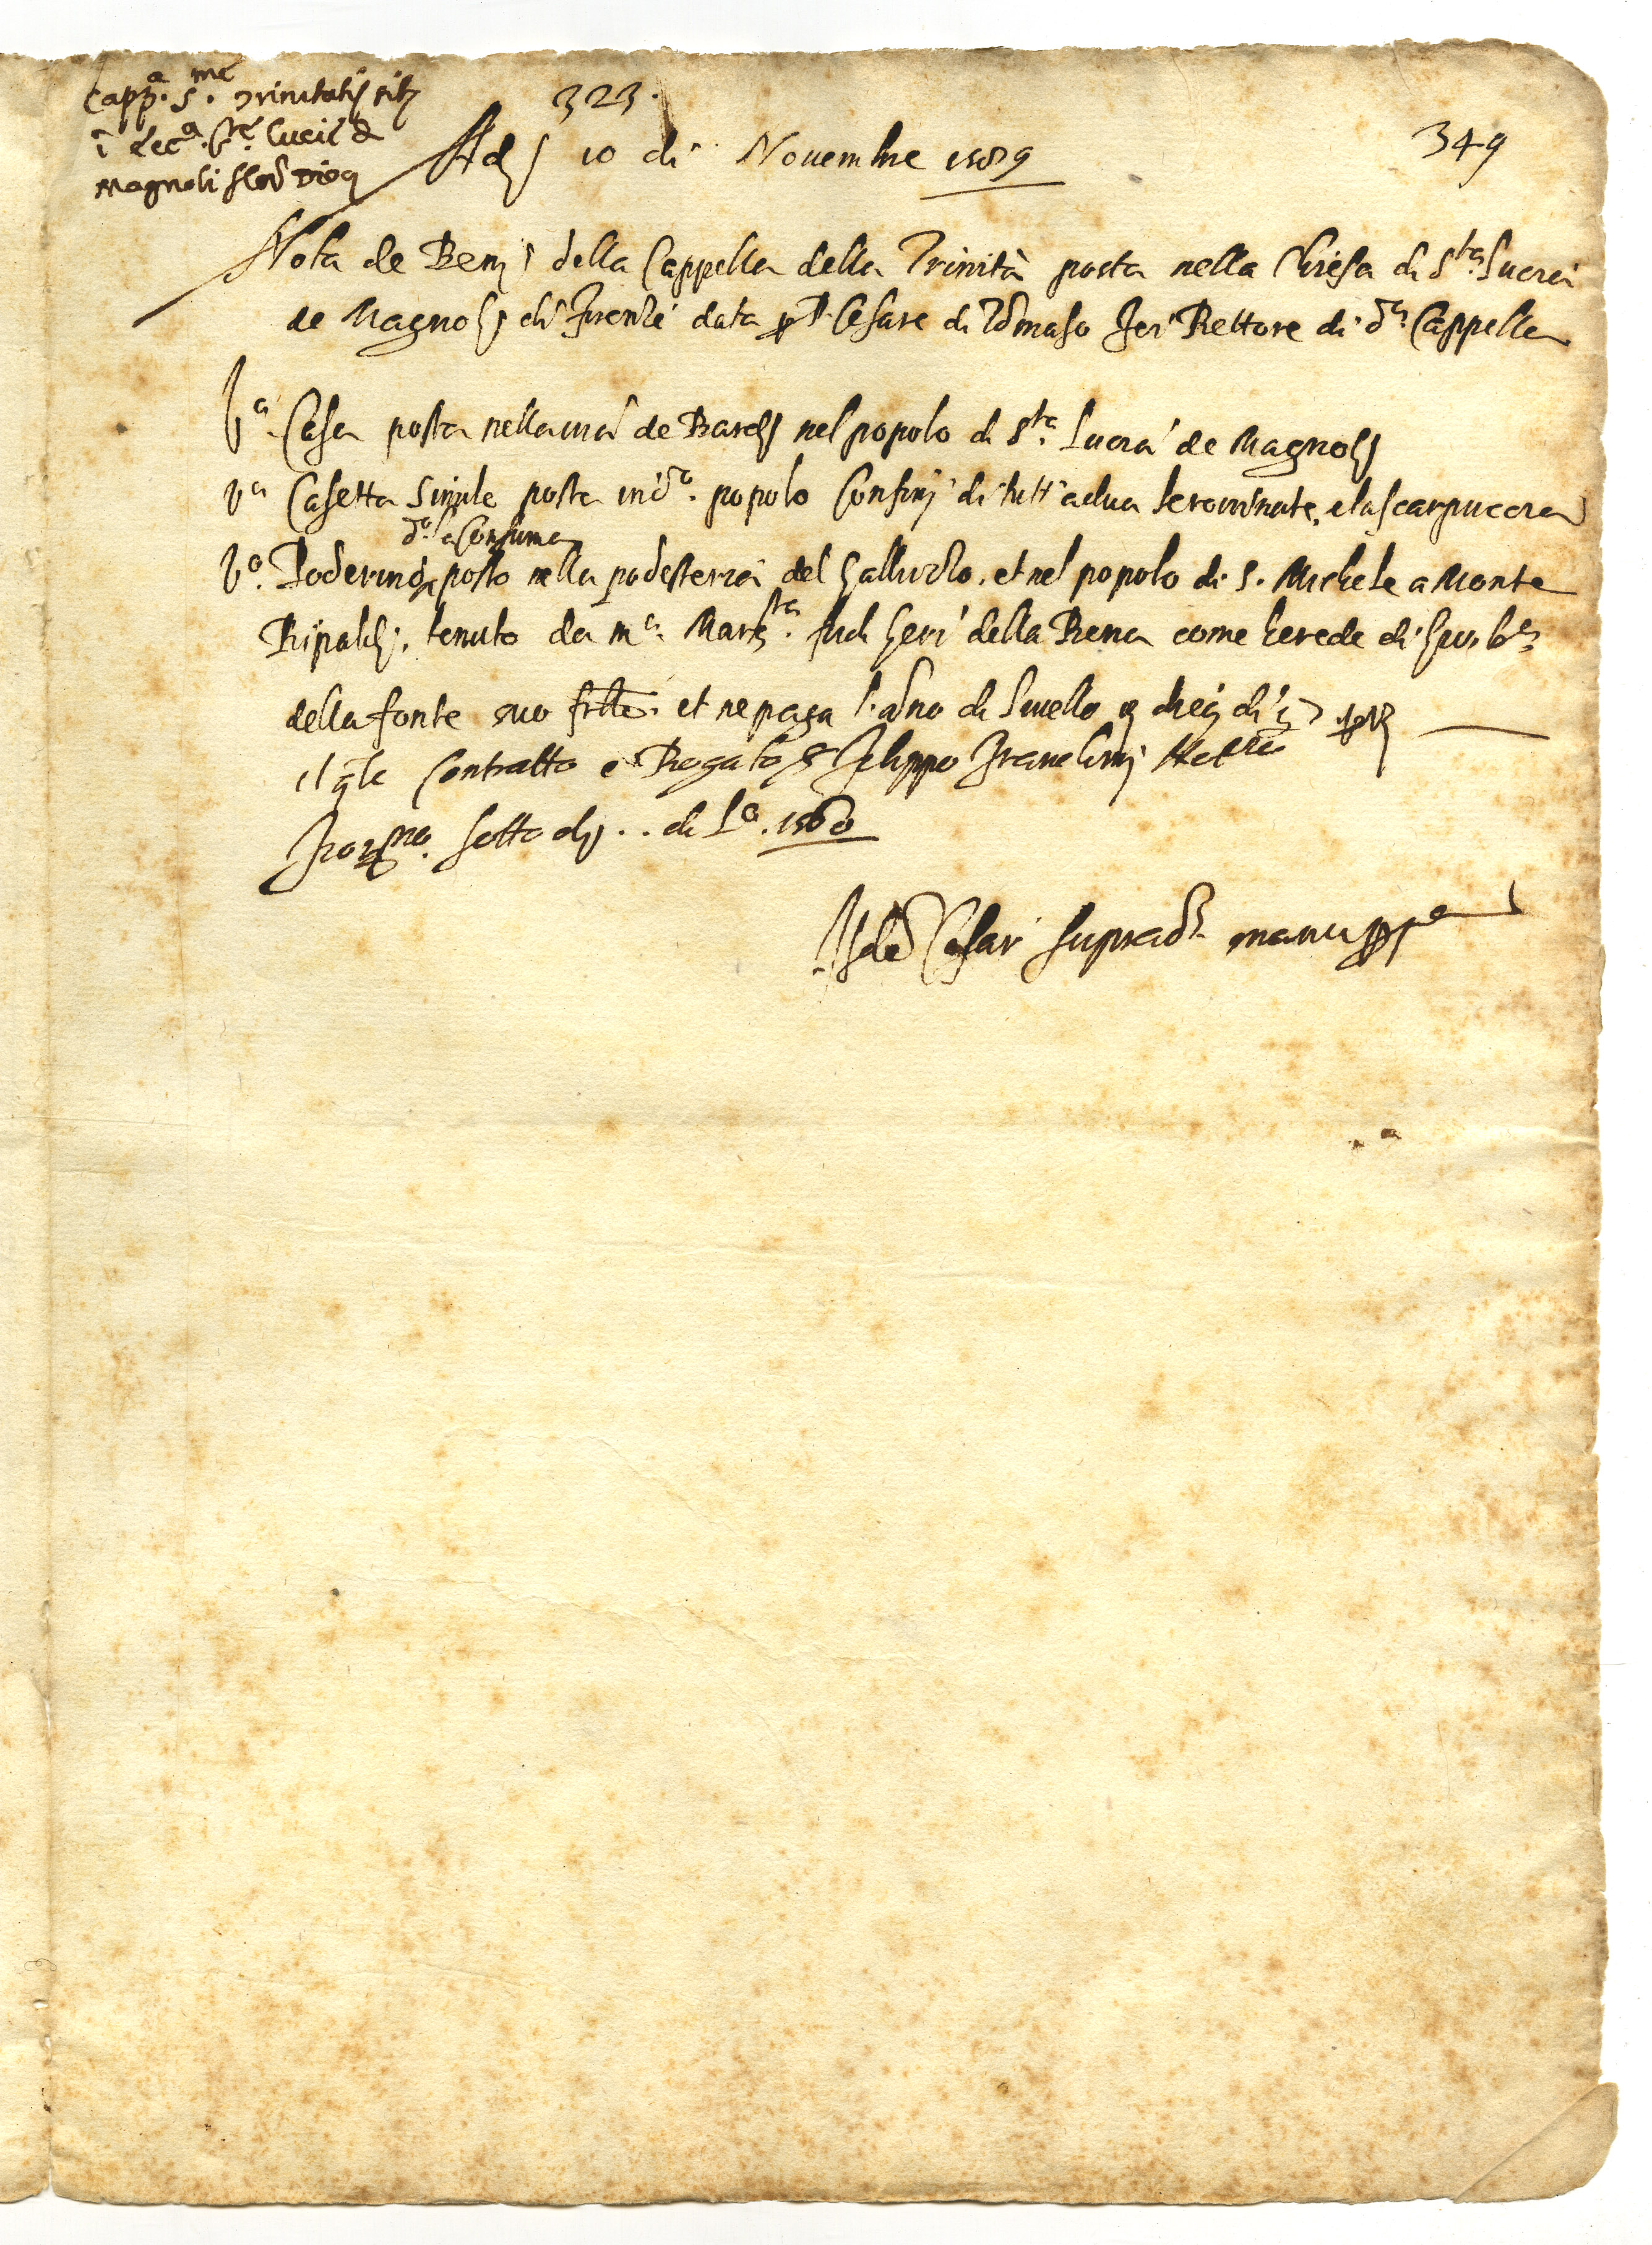 Capp.a S.me Trinitatis sit
i Ecc.a S.te Lucie d
Magnoli flor
323.
349
Adj 10 di Novembre 1589
Nota de Benj della Cappella della Trinità posta nella Chiesa di S.ta Lucia
de Magnolj di Firenze data p Cesare di Tomaso Rettore di d.a Cappella
Va Casa posta nella via de Bardj nel popolo di S.ta Lucia de Magnolj
Va Casetta simile posta in d.o popolo Confinj di tutt'a dua le rovinate, e la scarpuccia
d.o la Consuma
Vo Poderino posto nella podesteria del Galluzzo, et nel popolo di S. Michele a Monte
Ripaldj, tenuto da m.a Marg.ta di Geri della Rena come herede di
della fonte suo et ne paga l'anno di livello diecj di
il qle Contratto e Rogato Filippo Franchinj
sotto dj . . di 1560
Cesar suprad. manu pp.a